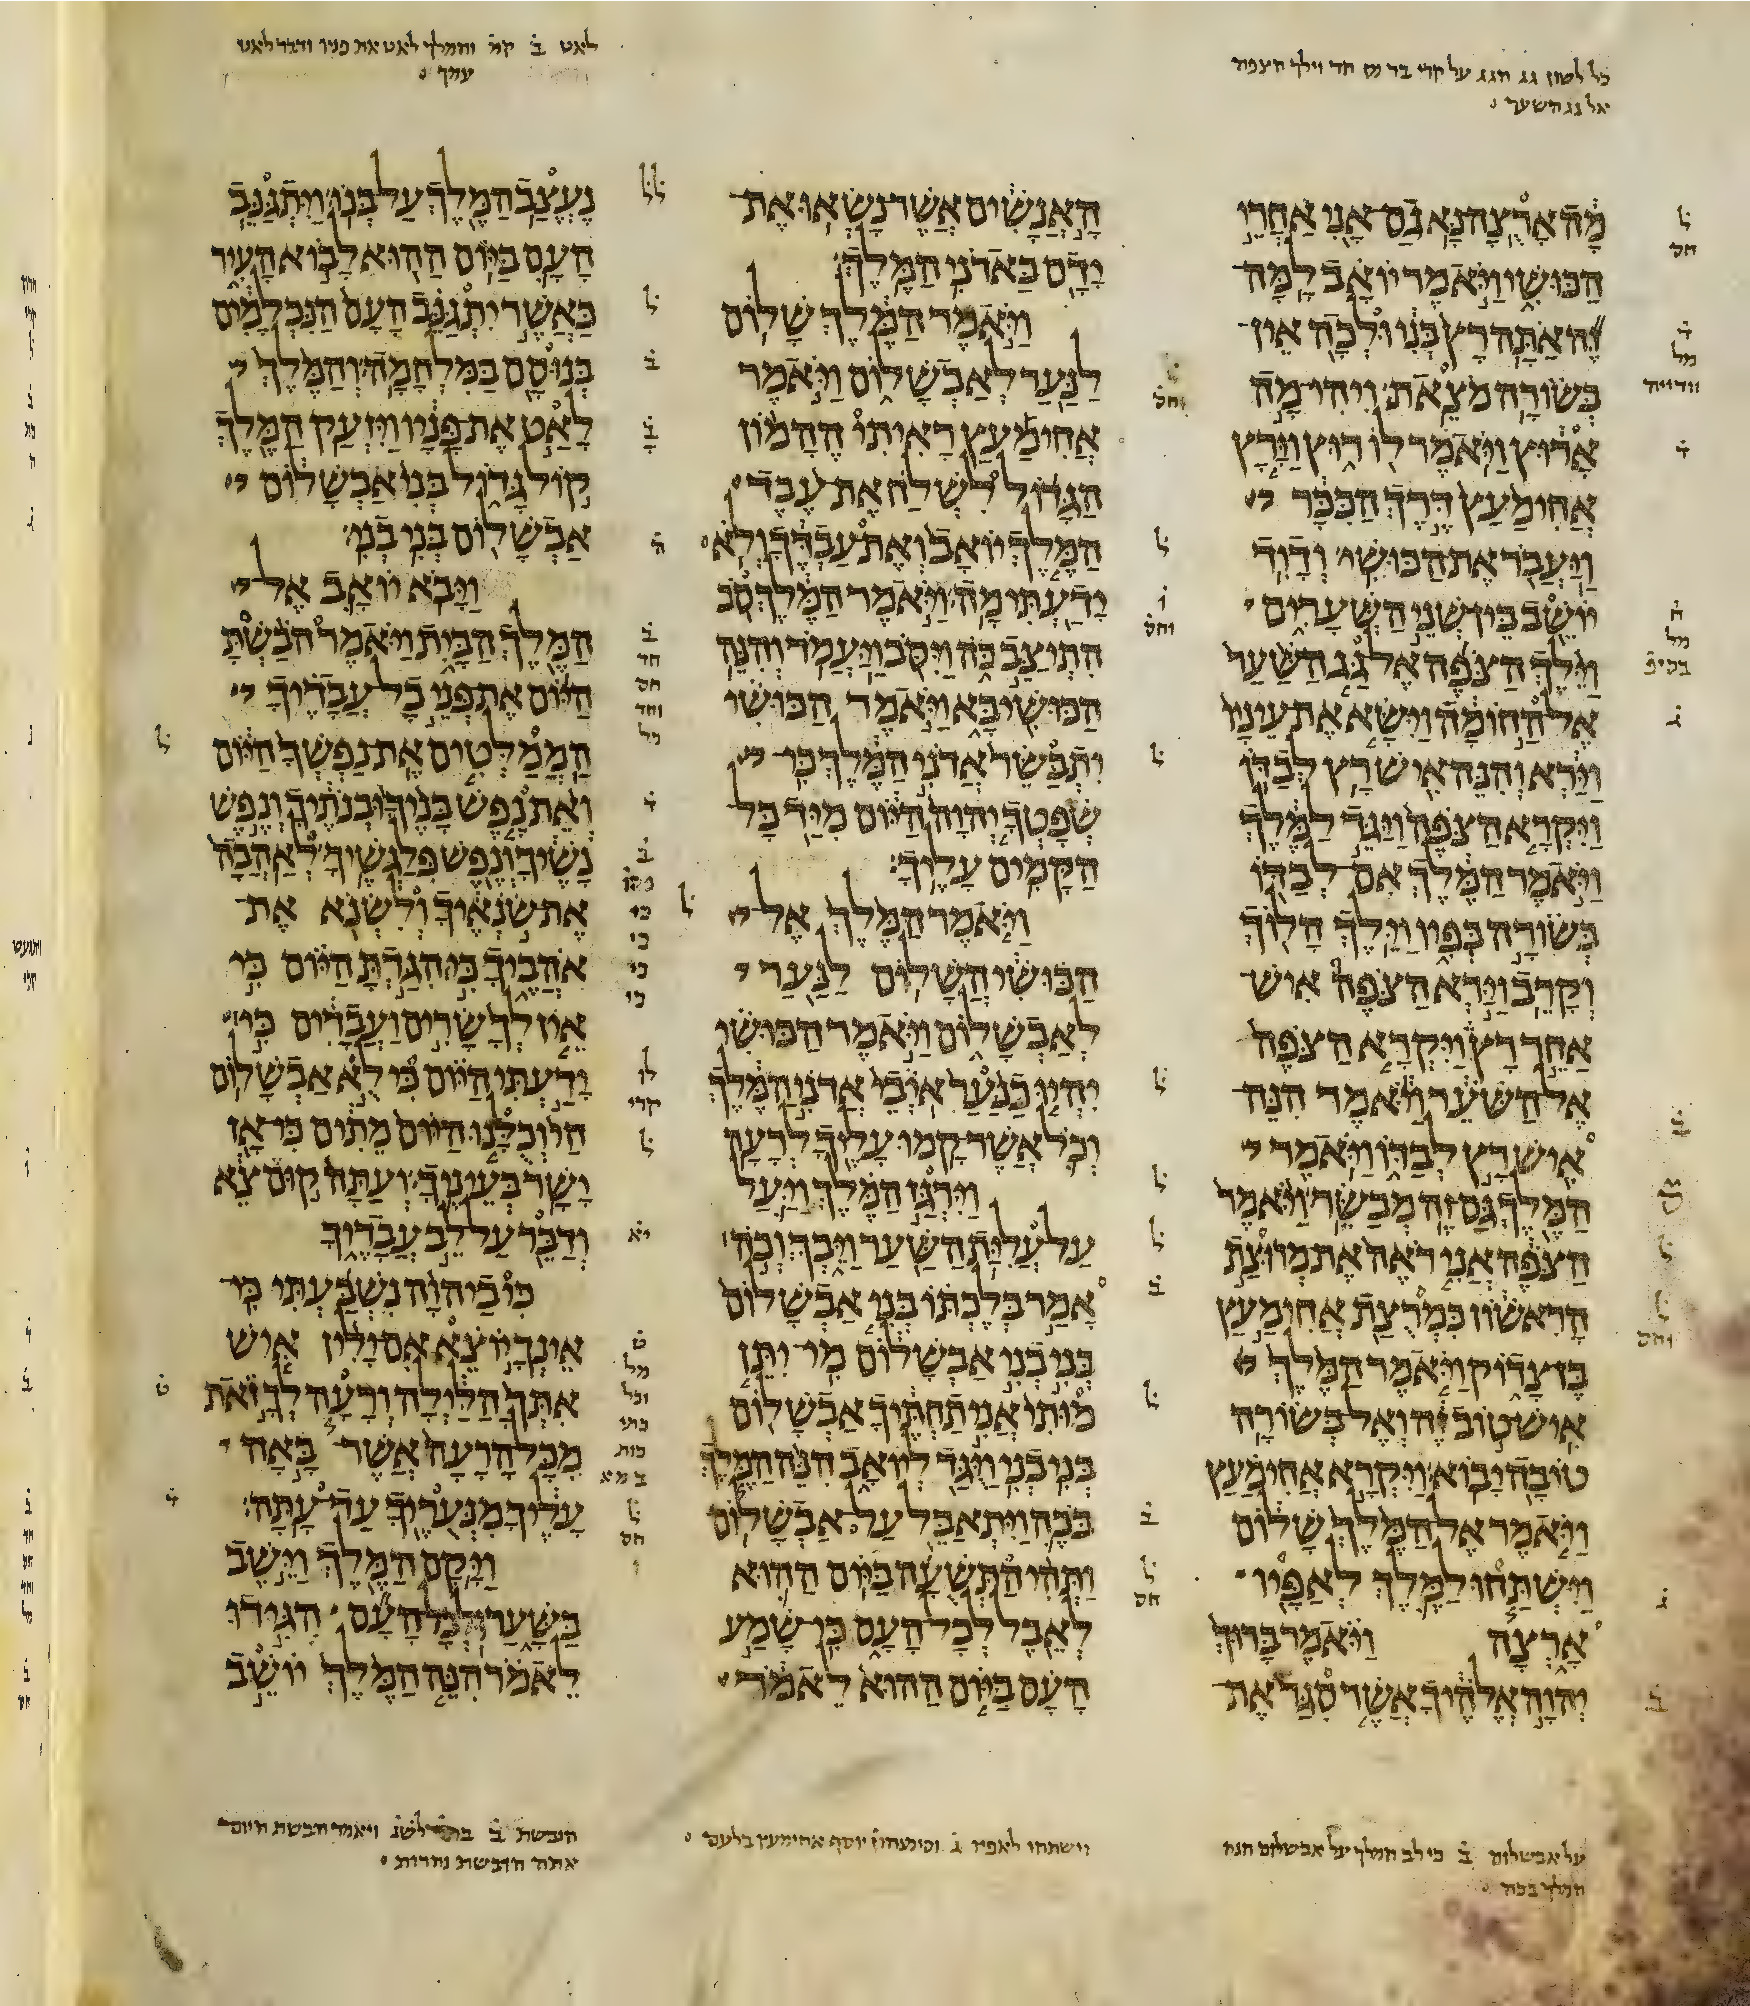 כל לשון גג הגג על קרי בר מן חד וילך הצפה
אל גג השער
מָה אָרֻצָה נָּא גַם אָנִי אַחֲרֵי
הַכּוּשִׁי וַיֹּאמֶר יוֹאָב לָמָּה
זֶּה אַתָּה רָץ בְּנִי וּלְכָה אֵין
בְּשׂוֹרָה מֹצֵאת וִיהִי מָה
אָרוּץ וַיֹּאמֶר לוֹ רוּץ וַיָּרָץ
אֲחִימַעַץ דֶּרֶךְ הַכִּכָּר
וַיַּעֲבֹר אֶת הַכּוּשִׁי וְדָוִד
יוֹשֵׁב בֵּין שְׁנֵי הַשְּׁעָרִים
וַיֵּלֶךְ הַצֹּפֶה אֶל גַּג הַשַּׁעַר
אֶל הַחוֹמָה וַיִּשָּׂא אֶת עֵינָיו
וַיַּרְא וְהִנֵּה אִישׁ רָץ לְבַדּוֹ
וַיִּקְרָא הַצֹּפֶה וַיַּגֵּד לַמֶּלֶךְ
וַיֹּאמֶר הַמֶּלֶךְ אִם לְבַדּוֹ
בְּשׂוֹרָה בְּפִיו וַיֵּלֶךְ הָלוֹךְ
וְקָרֵב וַיַּרְא הַצֹּפֶה אִישׁ
אַחֵר רָץ וַיִּקְרָא הַצֹּפֶה
אֶל הַשֹּׁעֵר וַיֹּאמֶר הִנֵּה
אִישׁ רָץ לְבַדּוֹ וַיֹּאמֶר
הַמֶּלֶךְ גַּם זֶה מְבַשֵּׂר וַיֹּאמֶר
הַצֹּפֶה אֲנִי רֹאֶה אֶת מְרוּצַת
הָרִאשׁוֹן כִּמְרֻצַת אֲחִימַעַץ
בֶּן צָדוֹק וַיֹּאמֶר הַמֶּלֶךְ
אִישׁ טוֹב זֶה וְאֶל בְּשׂוֹרָה
טוֹבָה יָבוֹא וַיִּקְרָא אֲחִימַעַץ
וַיֹּאמֶר אֶל הַמֶּלֶךְ שָׁלוֹם
וַיִּשְׁתַּחוּ לַמֶּלֶךְ לְאַפָּיו
אָרְצָה וַיֹּאמֶר בָּרוּךְ
יְהוָה אֱלֹהֶיךָ אֲשֶׁר סִגַּר אֶת
הָאֲנָשִׁים אֲשֶׁר נָשְׂאוּ אֶת
יָדָם בַּאדֹנִי הַמֶּלֶךְ׃
וַיֹּאמֶר הַמֶּלֶךְ שָׁלוֹם
לַנַּעַר לְאַבְשָׁלוֹם וַיֹּאמֶר
אֲחִימַעַץ רָאִיתִי הֶהָמוֹן
הַגָּדוֹל לִשְׁלֹחַ אֶת עֶבֶד
הַמֶּלֶךְ יוֹאָב וְאֶת עַבְדֶּךָ וְלֹא
יָדַעְתִּי מָה׃ וַיֹּאמֶר הַמֶּלֶךְ סֹב
הִתְיַצֵּב כֹּה וַיִּסֹּב וַיַּעֲמֹד וְהִנֵּה
הַכּוּשִׁי בָּא וַיֹּאמֶר הַכּוּשִׁי
יִתְבַּשֵּׂר אֲדֹנִי הַמֶּלֶךְ כִּי
שְׁפָטְךָ יְהוָה הַיּוֹם מִיַּד כָּל
הַקָּמִים עָלֶיךָ׃
וַיֹּאמֶר הַמֶּלֶךְ אֶל
הַכּוּשִׁי הֲשָׁלוֹם לַנַּעַר
לְאַבְשָׁלוֹם וַיֹּאמֶר הַכּוּשִׁי
יִהְיוּ כַנַּעַר אֹיְבֵי אֲדֹנִי הַמֶּלֶךְ
וְכֹל אֲשֶׁר קָמוּ עָלֶיךָ לְרָעָה
וַיִּרְגַּז הַמֶּלֶךְ וַיַּעַל
עַל עֲלִיַּת הַשַּׁעַר וַיֵּבְךְּ וְכֹה
אָמַר בְּלֶכְתּוֹ בְּנִי אַבְשָׁלוֹם
בְּנִי בְנִי אַבְשָׁלוֹם מִי יִתֵּן
מוּתִי אֲנִי תַחְתֶּיךָ אַבְשָׁלוֹם
בְּנִי בְנִי וַיֻּגַּד לְיוֹאָב הִנֵּה הַמֶּלֶךְ
בֹּכֶה וַיִּתְאַבֵּל עַל אַבְשָׁלוֹם
וַתְּהִי הַתְּשֻׁעָה בַּיּוֹם הַהוּא
לְאֵבֶל לְכָל הָעָם כִּי שָׁמַע
הָעָם בַּיּוֹם הַהוּא לֵאמֹר
לאט ב והמלך לאט את פניו ודבר לאט
עמך
נֶעֱצַב הַמֶּלֶךְ עַל בְּנוֹ׃ וַיִּתְגַּנֵּב
הָעָם בַּיּוֹם הַהוּא לָבוֹא הָעִיר
כַּאֲשֶׁר יִתְגַּנֵּב הָעָם הַנִּכְלָמִים
בְּנוּסָם בַּמִּלְחָמָה׃ וְהַמֶּלֶךְ
לָאַט אֶת פָּנָיו וַיִּזְעַק הַמֶּלֶךְ
קוֹל גָּדוֹל בְּנִי אַבְשָׁלוֹם
אַבְשָׁלוֹם בְּנִי בְנִי׃
וַיָּבֹא יוֹאָב אֶל
הַמֶּלֶךְ הַבָּיִת וַיֹּאמֶר הֹבַשְׁתָּ
הַיּוֹם אֶת פְּנֵי כָל עֲבָדֶיךָ
הַמְמַלְּטִים אֶת נַפְשְׁךָ הַיּוֹם
וְאֵת נֶפֶשׁ בָּנֶיךָ וּבְנֹתֶיךָ וְנֶפֶשׁ
נָשֶׁיךָ וְנֶפֶשׁ פִּלַגְשֶׁיךָ׃ לְאַהֲבָה
אֶת שֹׂנְאֶיךָ וְלִשְׂנֹא אֶת
אֹהֲבֶיךָ כִּי הִגַּדְתָּ הַיּוֹם כִּי
אֵין לְךָ שָׂרִים וַעֲבָדִים כִּי
יָדַעְתִּי הַיּוֹם כִּי לֻא אַבְשָׁלוֹם
חַי וְכֻלָּנוּ הַיּוֹם מֵתִים כִּי אָז
יָשָׁר בְּעֵינֶיךָ׃ וְעַתָּה קוּם צֵא
וְדַבֵּר עַל לֵב עֲבָדֶיךָ
כִּי בַיהוָה נִשְׁבַּעְתִּי כִּי
אֵינְךָ יוֹצֵא אִם יָלִין אִישׁ
אִתְּךָ הַלַּיְלָה וְרָעָה לְךָ זֹאת
מִכָּל הָרָעָה אֲשֶׁר בָּאָה
עָלֶיךָ מִנְּעֻרֶיךָ עַד עָתָּה׃
וַיָּקָם הַמֶּלֶךְ וַיֵּשֶׁב
בַּשָּׁעַר וּלְכָל הָעָם הִגִּידוּ
לֵאמֹר הִנֵּה הַמֶּלֶךְ יוֹשֵׁב
על אבשלום ב כי לב המלך על אבשלום הנה
המלך בכה
וישתחו לאפיו ג יוסף אחימעץ בלעם
הובשת ב ויאמר הבשת היום
אתה הובשת נהרות